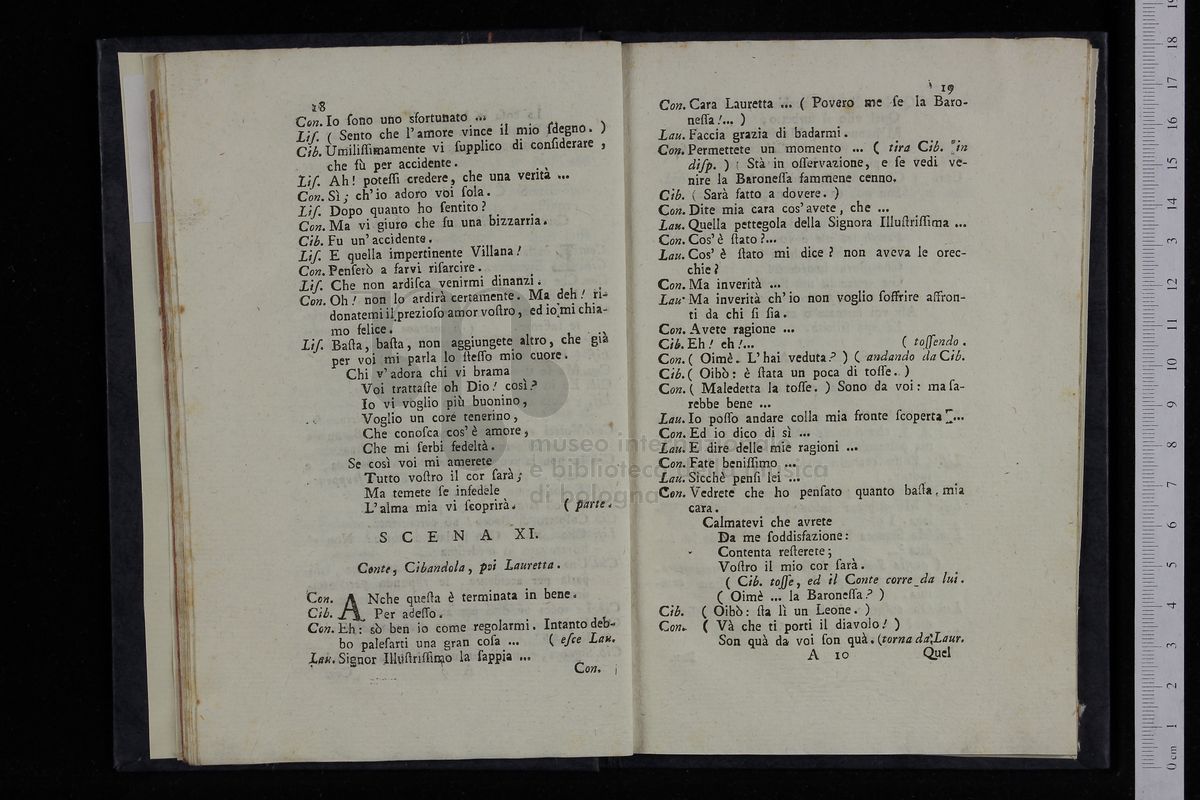 18
Con. Io ſono uno sfortunato ...
Liſ. ( Sento che l'amore vince il mio ſdegno. )
Cib. Umiliſſimamente vi ſupplico di conſiderare ,
che fù per accidente.
Liſ. Ah! poteſſi credere, che una verità ...
Con. Sì; ch'io adoro voi ſola.
Liſ. Dopo quanto ho ſentito?
Con. Ma vi giuro che fu una bizzarria.
Cib. Fu un'accidente.
Liſ. E quella impertinente Villana!
Con. Penſerò a farvi riſarcire.
Liſ. Che non ardiſca venirmi dinanzi.
Con. Oh! non lo ardirà certamente. Ma deh! ri-
donatemi il prezioſo amor voſtro, ed io mi chia-
mo felice.
Liſ. Baſta, baſta, non aggiungete altro, che già
per voi mi parla lo ſteſſo mio cuore.
Chi v'adora chi vi brama
Voi trattaſte oh Dio! così?
Io vi voglio più buonino,
Voglio un core tenerino,
Che conoſca cos'è amore,
Che mi ſerbi fedeltà.
Se così voi mi amerete
Tutto voſtro il cor ſarà;
Ma temete ſe infedele
L'alma mia vi ſcoprirà. ( parte.
SCENA XI.
Conte, Cibandola, poi Lauretta.
Con. ANche queſta è terminata in bene.
Cib. Per adeſſo.
Con. Eh: sò ben io come regolarmi. Intanto deb-
bo paleſarti una gran coſa ... ( eſce Lau.
Lau. Signor Illuſtriſſimo la ſappia ...
Con.
19
Con. Cara Lauretta ... ( Povero me ſe la Baro-
neſſa!... )
Lau. Faccia grazia di badarmi.
Con. Permettete un momento ... ( tira Cib. in
diſp. ) Stà in oſſervazione, e ſe vedi ve-
nire la Baroneſſa fammene cenno.
Cib. ( Sarà fatto a dovere. )
Con. Dite mia cara cos'avete, che ...
Lau. Quella pettegola della Signora Illuſtriſſima ...
Con. Cos'è ſtato?...
Lau. Cos'è ſtato mi dice? non aveva le orec-
chie?
Con. Ma inverità ...
Lau. Ma inverità ch'io non voglio ſoffrire affron-
ti da chi ſi ſia.
Con. Avete ragione ...
Cib. Eh! eh!... ( toſſendo.
Con. ( Oimè. L'hai veduta? ) ( andando da Cib.
Cib. ( Oibò: è ſtata un poca di toſſe. )
Con. ( Maledetta la toſſe. ) Sono da voi: ma ſa-
rebbe bene ...
Lau. Io poſſo andare colla mia fronte ſcoperta ...
Con. Ed io dico di sì ...
Lau. E dire delle mie ragioni ...
Con. Fate beniſſimo ...
Lau. Sicchè penſi lei ...
Con. Vedrete che ho penſato quanto baſta, mia
cara.
Calmatevi che avrete
Da me ſoddisfazione:
Contenta reſterete;
Voſtro il mio cor ſarà.
( Cib. toſſe, ed il Conte corre da lui.
( Oimè ... la Baroneſſa? )
Cib. ( Oibò: ſta lì un Leone. )
Con. ( Và che ti porti il diavolo! )
Son quà da voi ſon quà. (torna da Laur.
A 10 Quel
museo internazionale
e biblioteca della musica
di bologna
0 cm 1 2 3 4 5 6 7 8 9 10 11 12 13 14 15 16 17 18 19